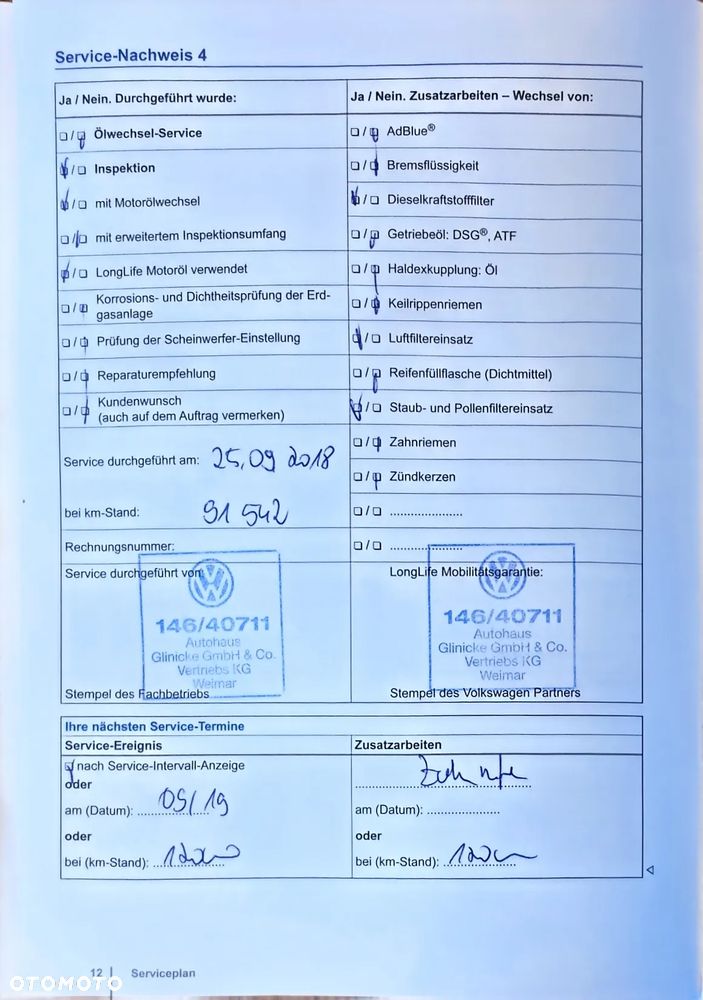 Service-Nachweis 4
Ja / Nein. Durchgeführt wurde:
Ölwechsel-Service
Inspektion
mit Motorölwechsel
mit erweitertem Inspektionsumfang
LongLife Motoröl verwendet
Korrosions- und Dichtheitsprüfung der Erd-
gasanlage
Prüfung der Scheinwerfer-Einstellung
Reparaturempfehlung
Kundenwunsch
(auch auf dem Auftrag vermerken)
Service durchgeführt am: 25.09 2018
bei km-Stand: 91 542
Rechnungsnummer:
Service durchgeführt von:
146/40711
Autohaus
Glinicke GmbH & Co.
Vertriebs KG
Weimar
Stempel des Fachbetriebs
Ja / Nein. Zusatzarbeiten – Wechsel von:
AdBlue®
Bremsflüssigkeit
Dieselkraftstofffilter
Getriebeöl: DSG®, ATF
Haldexkupplung: Öl
Keilrippenriemen
Luftfiltereinsatz
Reifenfüllflasche (Dichtmittel)
Staub- und Pollenfiltereinsatz
Zahnriemen
Zündkerzen
LongLife Mobilitätsgarantie:
146/40711
Autohaus
Glinicke GmbH & Co.
Vertriebs KG
Weimar
Stempel des Volkswagen Partners
Ihre nächsten Service-Termine
Service-Ereignis
nach Service-Intervall-Anzeige
oder
am (Datum): 09/19
oder
bei (km-Stand):
Zusatzarbeiten
am (Datum):
oder
bei (km-Stand):
12 Serviceplan
OTOMOTO